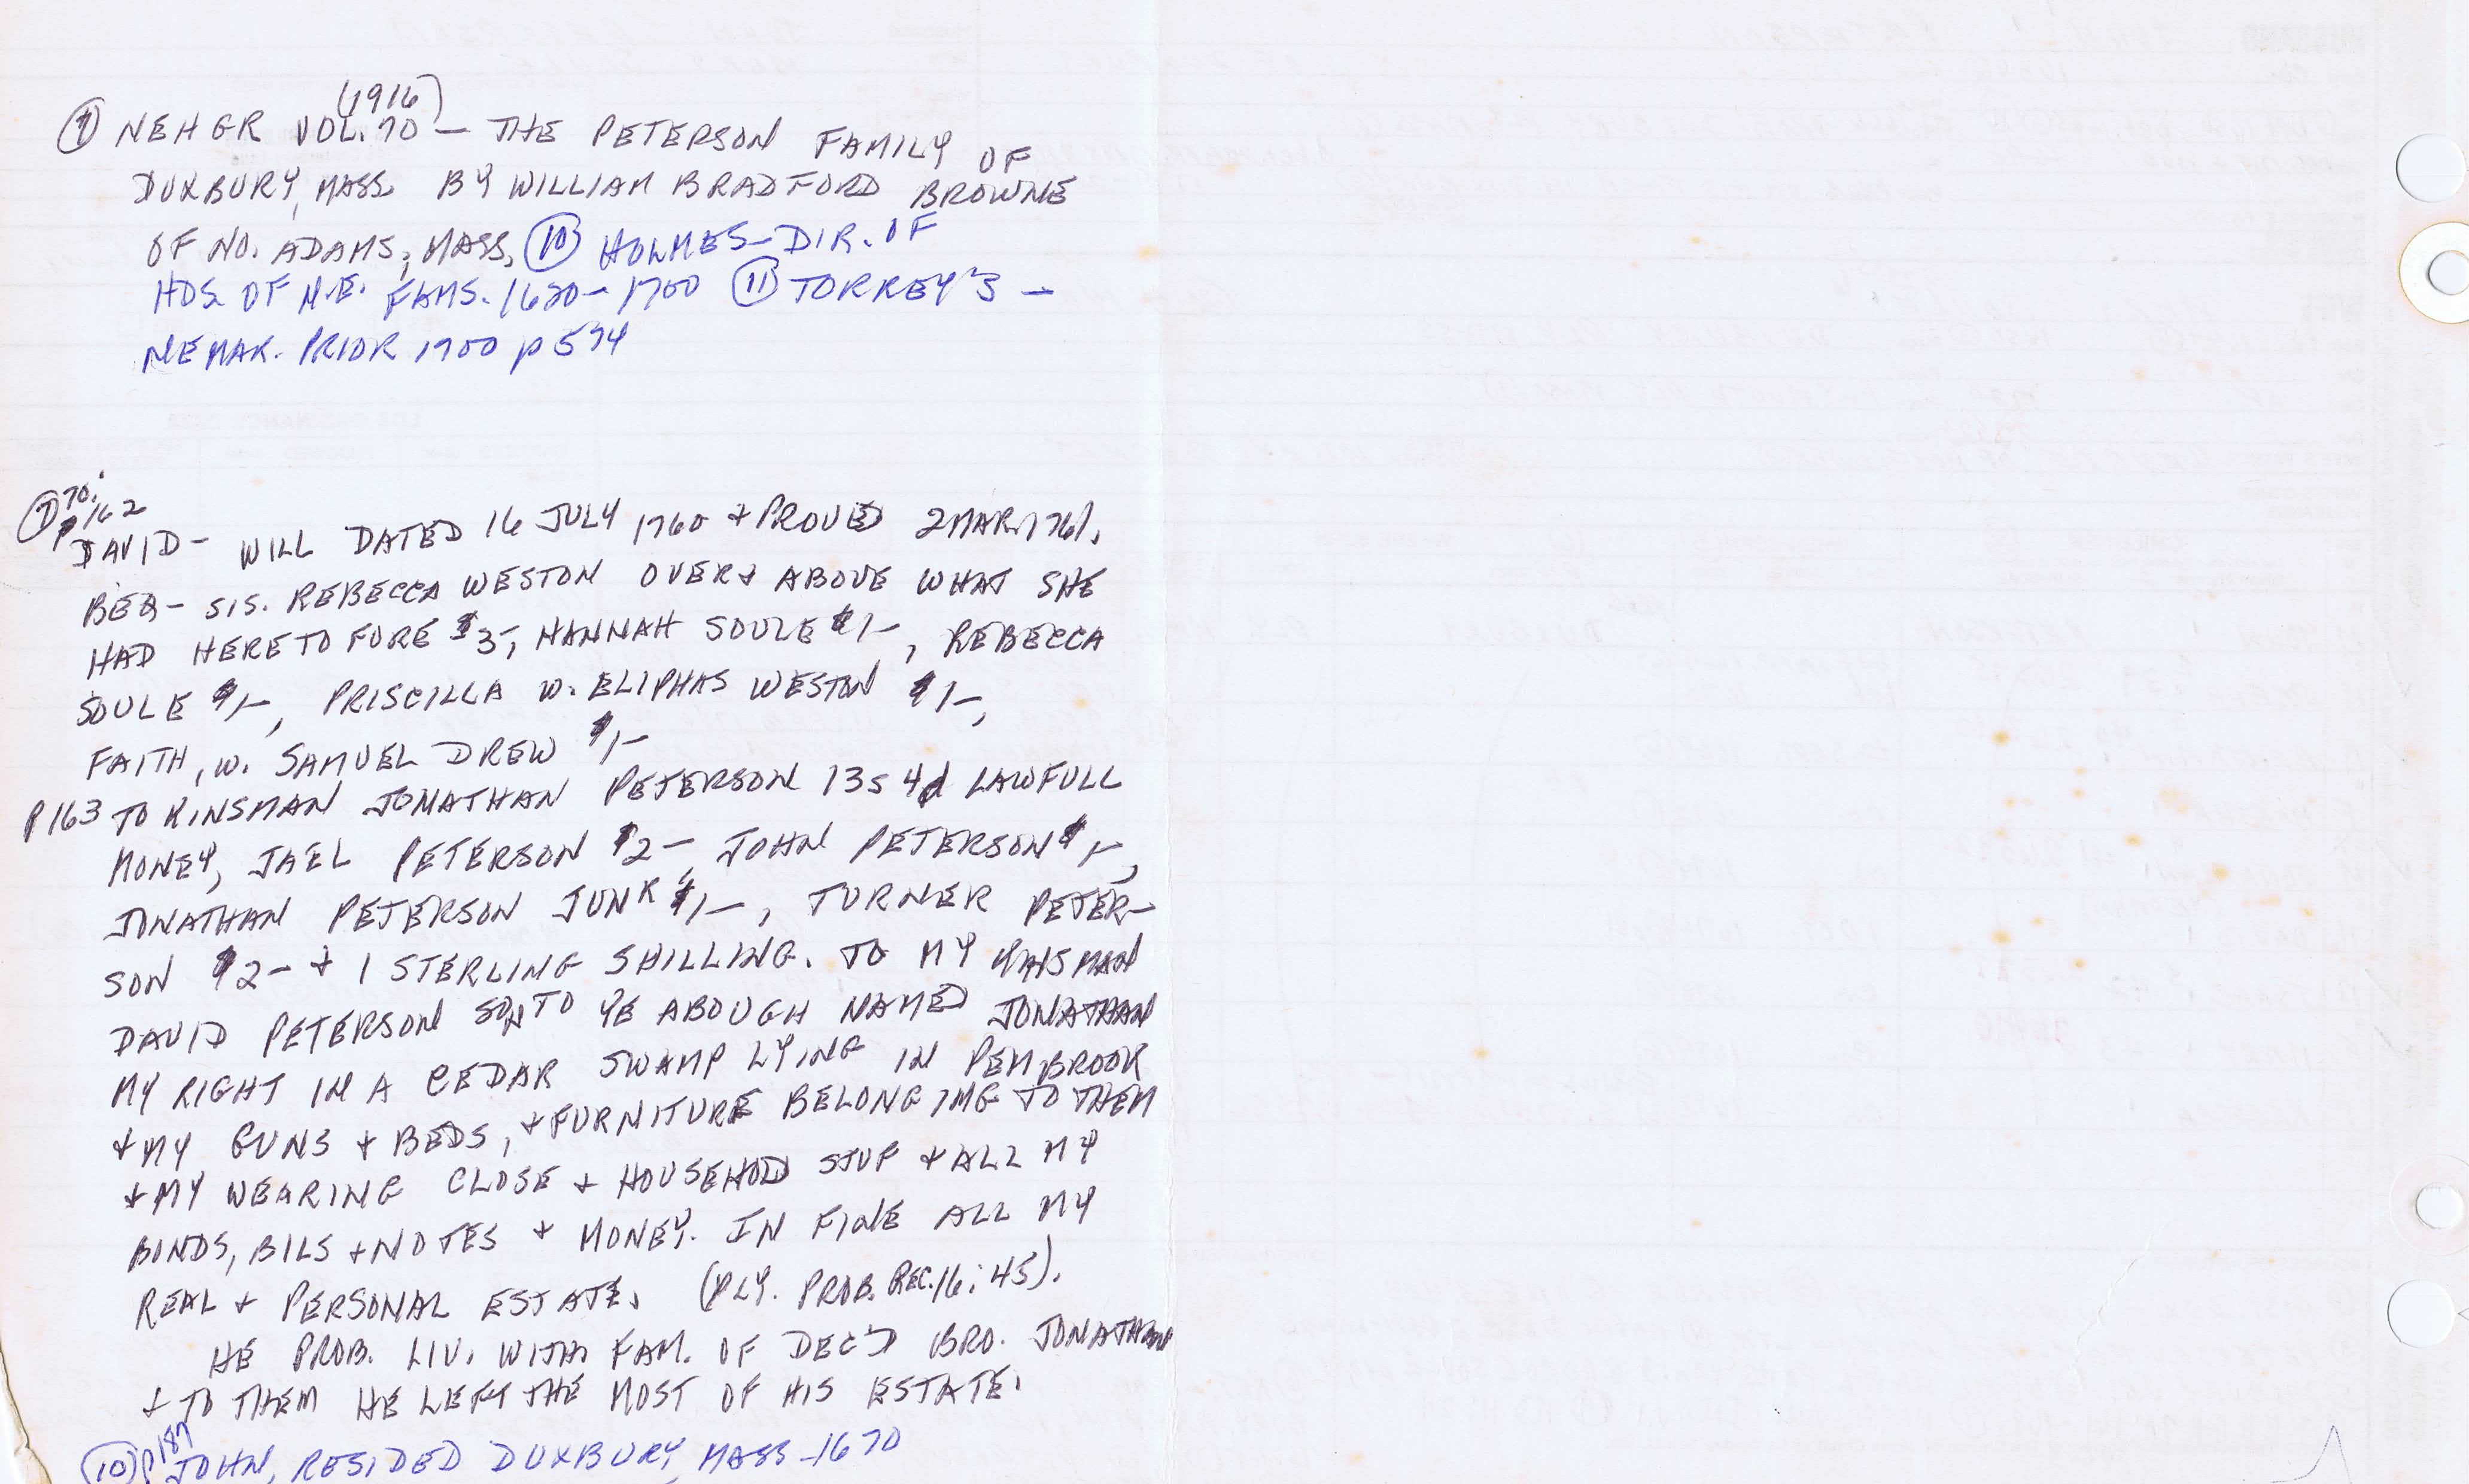 (1916)
① NEHGR VOL. 70 — THE PETERSON FAMILY OF
DUXBURY, MASS. BY WILLIAM BRADFORD BROWNE
OF NO. ADAMS, MASS. ⑩ HOLMES - DIR. OF
HDS. OF N.E. FAMS. 1620 - 1700 ⑪ TORREY'S —
NE MAR. PRIOR 1700 p 574
① 70:
p 162
DAVID - WILL DATED 16 JULY 1760 + PROVED 2 MAR. 1761.
BEQ - SIS. REBECCA WESTON OVER + ABOVE WHAT SHE
HAD HERE TO FORE $3-, HANNAH SOULE $1-, REBECCA
SOULE $1-, PRISCILLA W. ELIPHAS WESTON $1-,
FAITH, W. SAMUEL DREW $1-
P 163 TO KINSMAN JONATHAN PETERSON 13s 4d LAWFULL
MONEY, JAEL PETERSON $2-, JOHN PETERSON $1-,
JONATHAN PETERSON JUNR $1-, TURNER PETER-
SON $2- + 1 STERLING SHILLING. TO MY KINSMAN
DAVID PETERSON SON TO YE ABOUGH NAMED JONATHAN
MY RIGHT IN A CEDAR SWAMP LYING IN PEMBROOK
+ MY GUNS + BEDS, + FURNITURE BELONGING TO THEM
+ MY WEARING CLOSE + HOUSEHOLD STUF + ALL MY
BONDS, BILS + NOTES + MONEY. IN FINE ALL MY
REAL + PERSONAL ESTATE. (PLY. PROB. REC. 16:45).
HE PROB. LIV. WITH FAM. OF DEC'D BRO. JONATHAN
+ TO THEM HE LEFT THE MOST OF HIS ESTATE.
⑩ p 187 JOHN, RESIDED DUXBURY, MASS - 1670